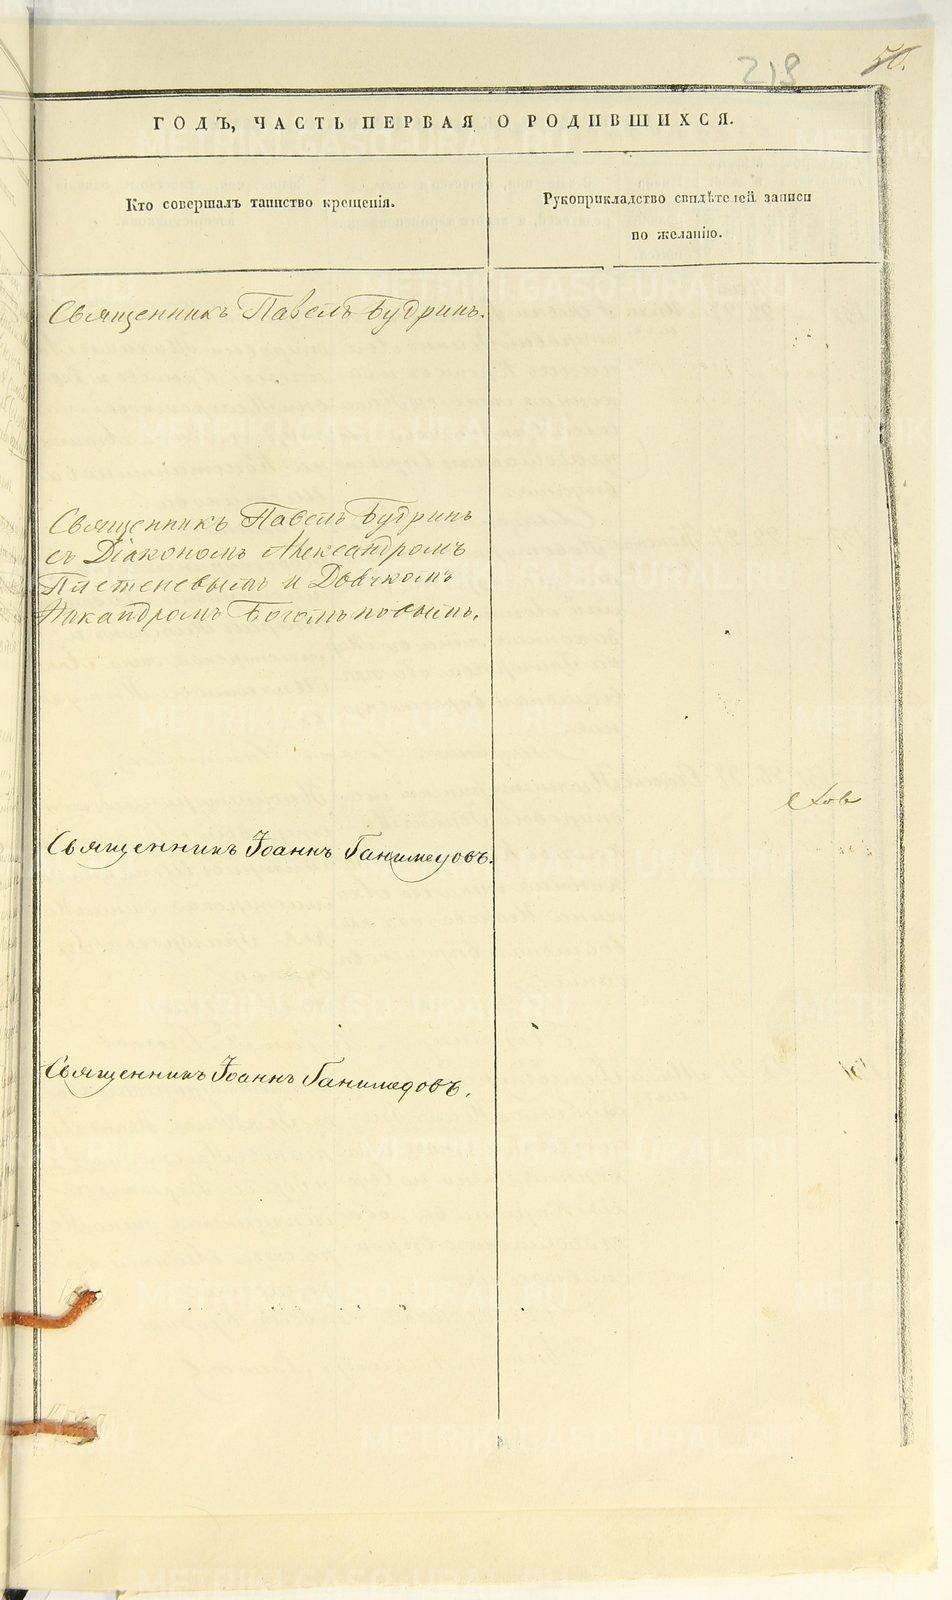 219
50.
ГОДЪ, ЧАСТЬ ПЕРВАЯ О РОДИВШИХСЯ.
Кто совершалъ таинство крещенія.
Рукоприкладство свидѣтелей записи
по желанію.
Священникъ Павелъ Будринъ.
Священникъ Павелъ Будринъ
съ Діакономъ Александромъ
Плетеневымъ и Дьячкомъ
Никандромъ Богомъ
Священникъ Іоаннъ Ганимедовъ.
Священникъ Іоаннъ Ганимедовъ.
METRIKI.GASO-URAL.RU